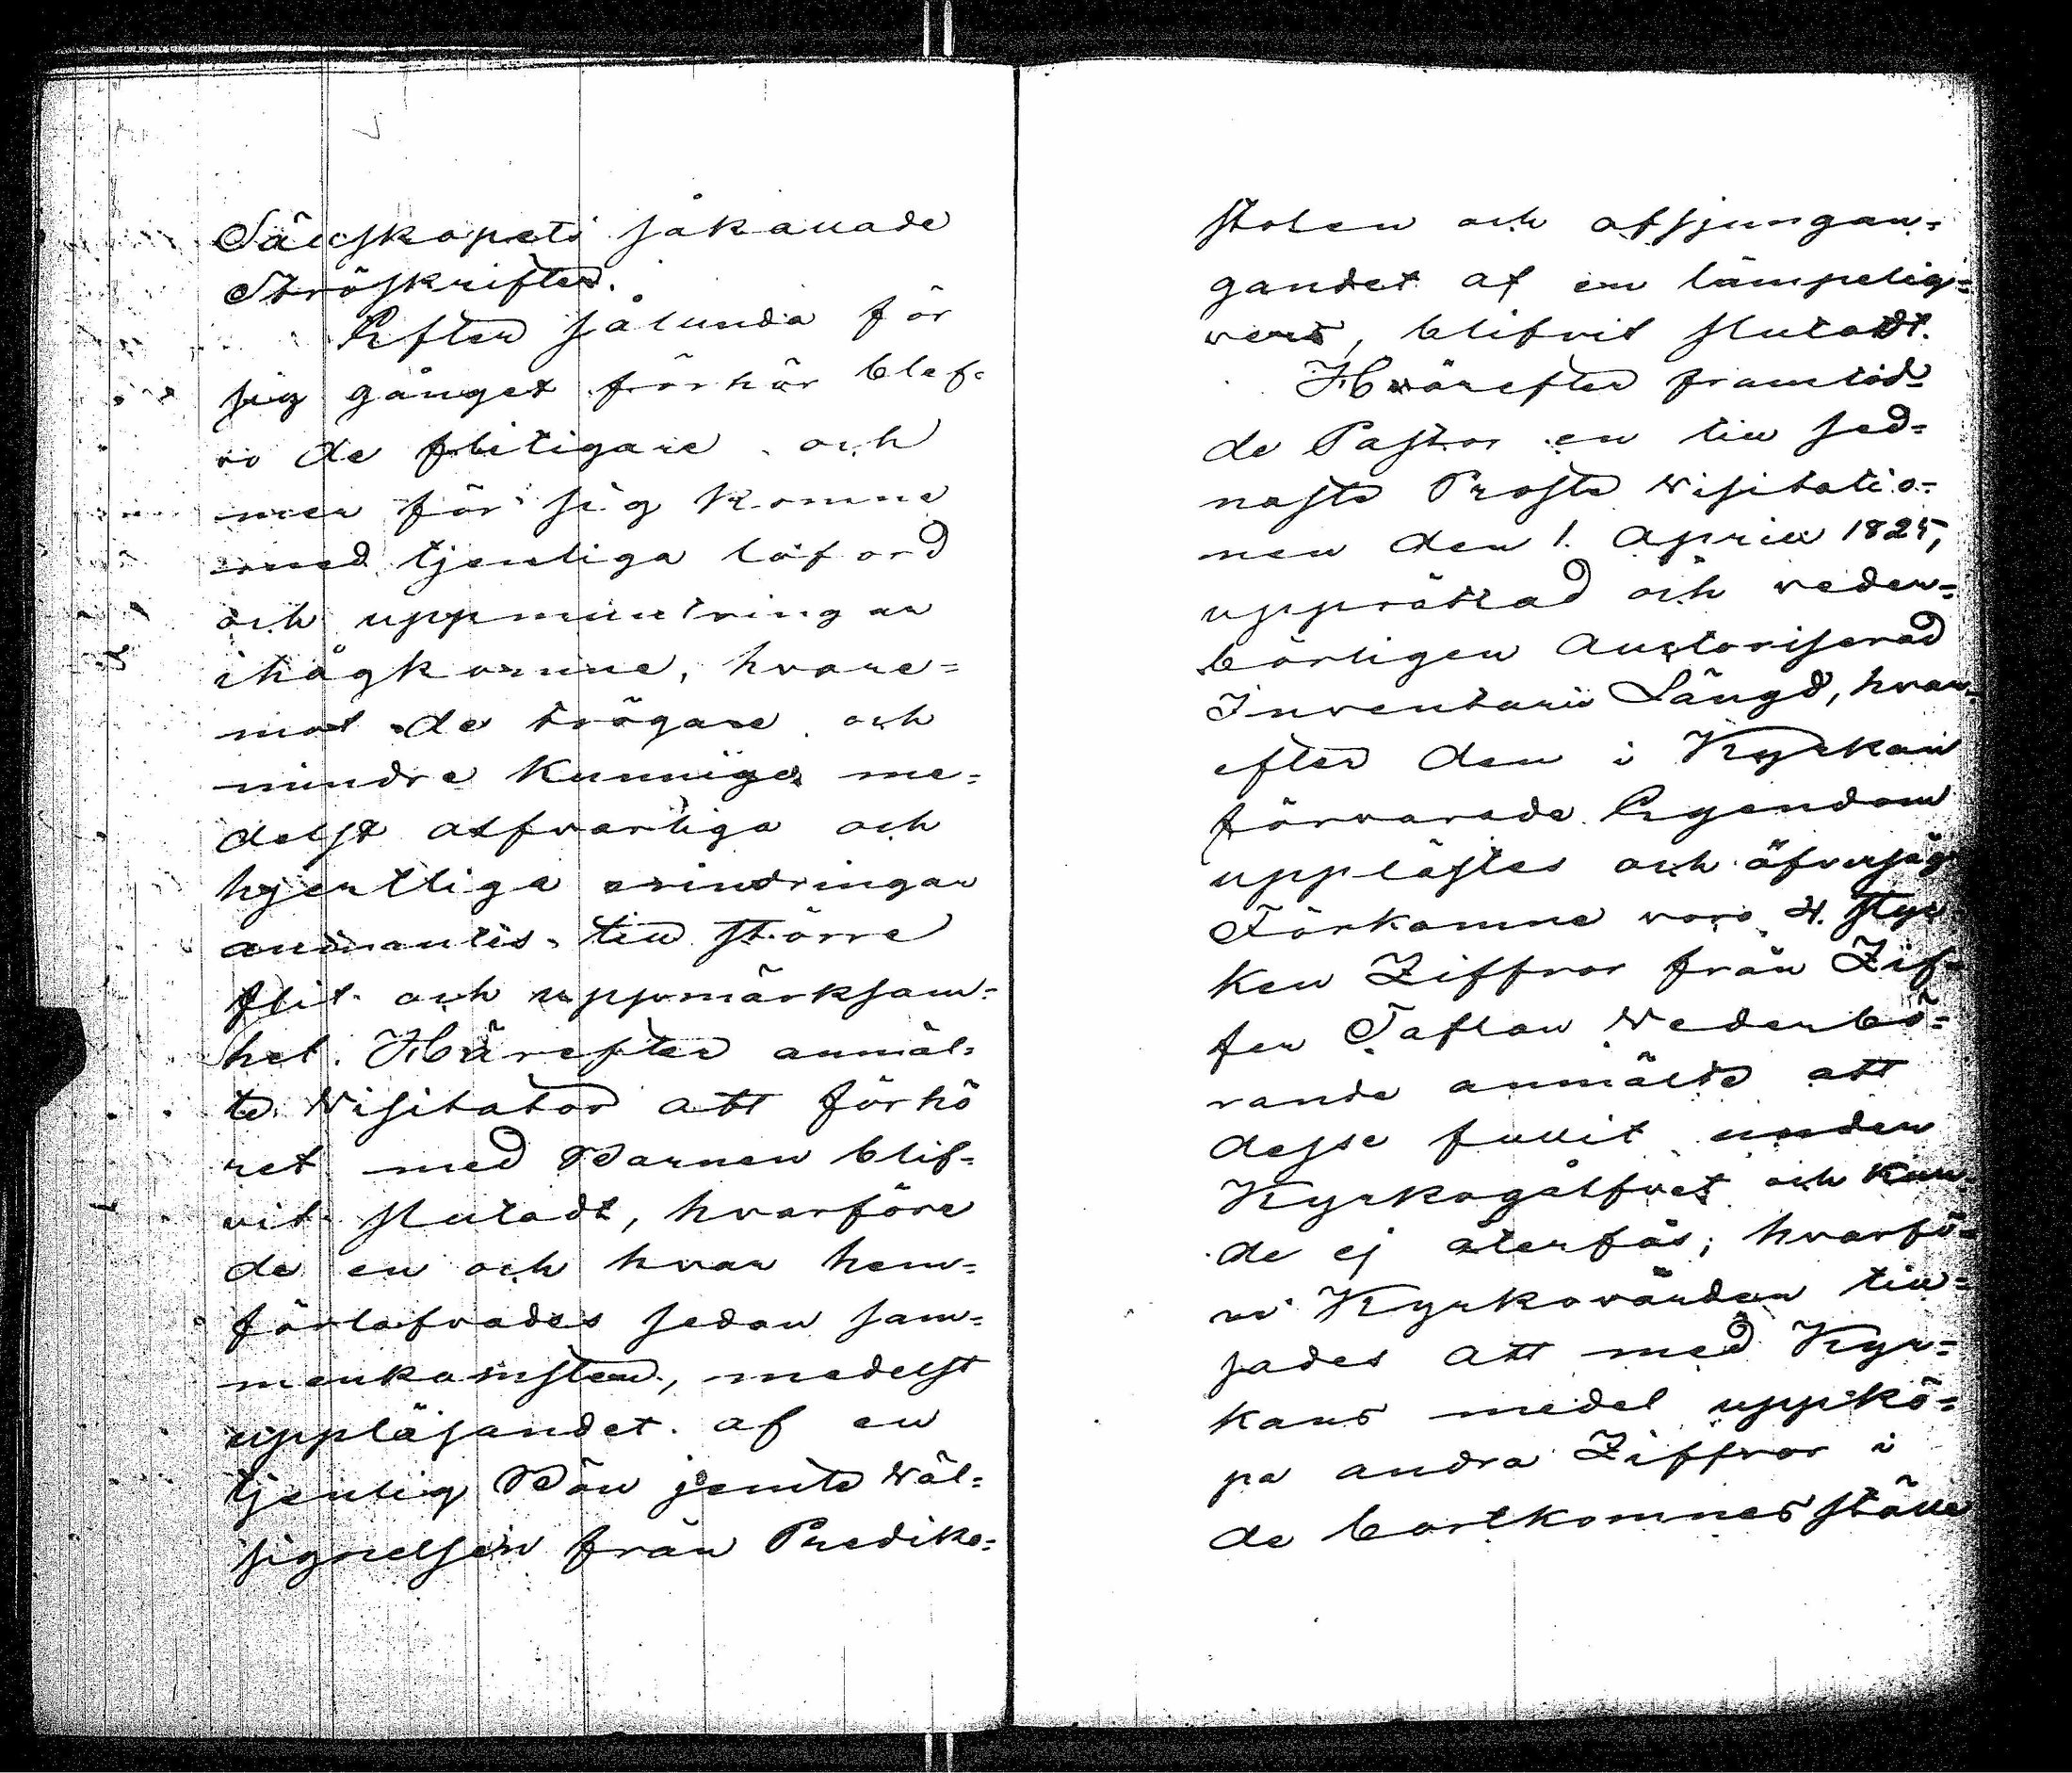 Sällskapets såkallade
Ströskrifter.
Efter sålunda för
sig gånget förhör blef-
vo de flitigare och
mer för sig komne
med tjenliga låford
och uppmuntringar
ihågkomne, hvare=
mot de trögare och
mindre kunniga me=
delst alfvarliga och
hjertliga erindringar
anmantes till större
flit och uppmärksam=
het. Härefter anmäl=
te Visitator att förhö
ret med Barnen blif=
vit slutadt, hvarföre
de en och hvar hem=
förlofvades sedan sam=
menkomsten, medelst
uppläsandet af en
tjenlig Bön jemte Wäl=
signelsen från Prediko=
stolen och afsjungan=
gandet af en lämpelig
vers, blifvit slutadt.
Hvarefter framlad=
de Pastor en till sed=
naste Prosts Visitatio=
nen den 1. April 1825,
upprättad och veder=
börligen Auctoriserad
Inventarii Längd, hvar=
efter den i Kyrkan
förvarade Egendom
upplästes och öfversågs
Förkomne voro 4. styc
ken Ziffror från Zif=
fer Taflan Vederbö=
rande anmälte att
desse fallit under
Kyrkogålfvet och kun=
de ej återfås; hvarfö=
re Kyrkovärden till=
sades att med Kyr=
kans medel uppkö=
pa andra Ziffror i
de bortkomnes ställe